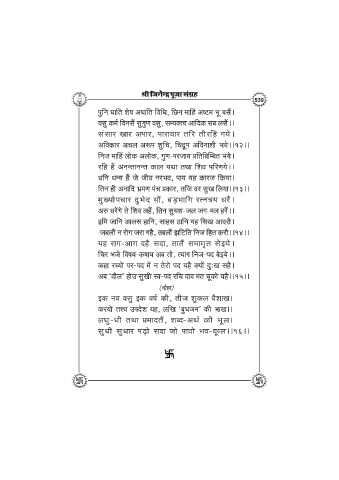 श्री जिनेन्द्र पूजा संग्रह
539
पुनि घाति शेष अघाति विधि, छिन माहिं अष्टम भू बसैं।
वसु कर्म विनसैं सुगुण वसु, सम्यक्त्व आदिक सब लसैं।।
संसार खार अपार, पारावार तरि तीरहिं गये।
अविकार अचल अरूप शुचि, चिद्रूप अविनाशी भये।।१२।।
निज माहिं लोक अलोक, गुण-परजाय प्रतिबिम्बित भये।
रहि हैं अनन्तानन्त काल यथा तथा शिव परिणये।।
धनि धन्य हैं जे जीव नरभव, पाय यह कारज किया।
तिन ही अनादि भ्रमण पंच प्रकार, तजि वर सुख लिया।।१३।।
मुख्योपचार दुभेद यों, बड़भागि रत्नत्रय धरैं।
अरु धरेंगे ते शिव लहैं, तिन सुयश-जल जग-मल हरैं।
इमि जानि आलस हानि, साहस ठानि यह सिख आदरौ।
जबलौं न रोग जरा गहै, तबलौं झटिति निज हित करौ।।१४।।
यह राग-आग दहै सदा, तातैं समामृत सेइये।
चिर भजे विषय-कषाय अब तो, त्याग निज-पद बेइये।।
कहा रच्यो पर-पद में न तेरो पद यहै क्यों दुःख सहै।
अब ‘दौल’ होउ सुखी स्व-पद रचि दाव मत चूको यहै।।१५।।
(दोहा)
इक नव वसु इक वर्ष की, तीज शुकल वैशाख।
करयो तत्त्व उपदेश यह, लखि ‘बुधजन’ की भाख।।
लघु-धी तथा प्रमादतैं, शब्द-अर्थ की भूल।
सुधी सुधार पढ़ो सदा जो पावो भव-कूल।।१६।।
卐